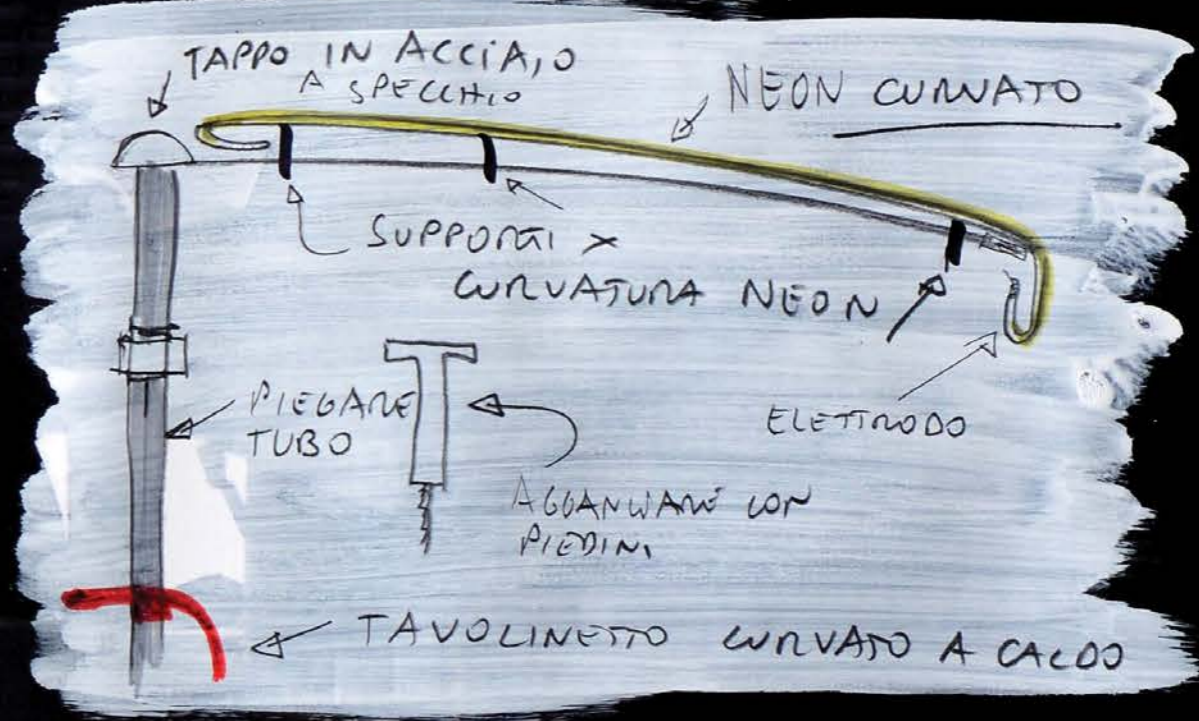 TAPPO IN ACCIAIO
A SPECCHIO
NEON CURVATO
SUPPORTI X
CURVATURA NEON
PIEGARE
TUBO
ELETTRODO
AGGANCIARE CON
PIEDINI
TAVOLINETTO CURVATO A CALDO